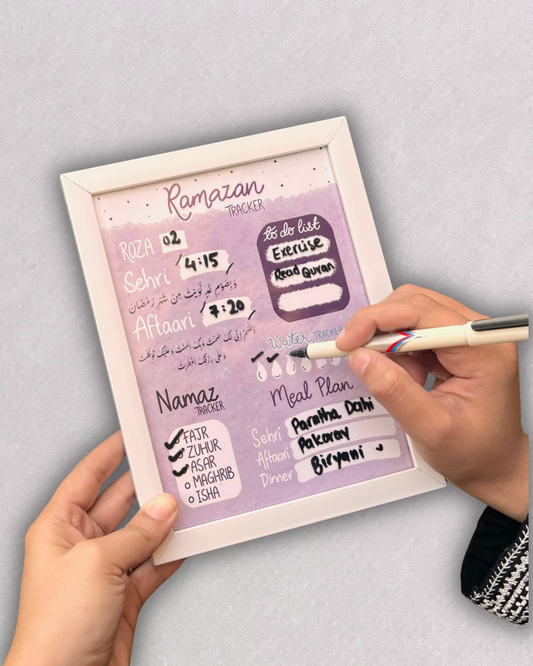 Ramazan
TRACKER
ROZA 02
Sehri 4:15
وَبِصَوْمِ غَدٍ نَّوَيْتُ مِنْ شَهْرِ رَمَضَانَ
Aftaari 7:20
اَللّٰهُمَّ اِنِّی لَکَ صُمْتُ وَبِکَ اٰمَنْتُ وَعَلَيْکَ تَوَکَّلْتُ
وَعَلٰی رِزْقِکَ اَفْطَرْتُ
to do list
Exercise
Read Quran
Water TRACKER
Namaz
TRACKER
FAJR
ZUHUR
ASAR
MAGHRIB
ISHA
Meal Plan
Sehri Paratha Dahi
Aftaari Pakoray
Dinner Biryani